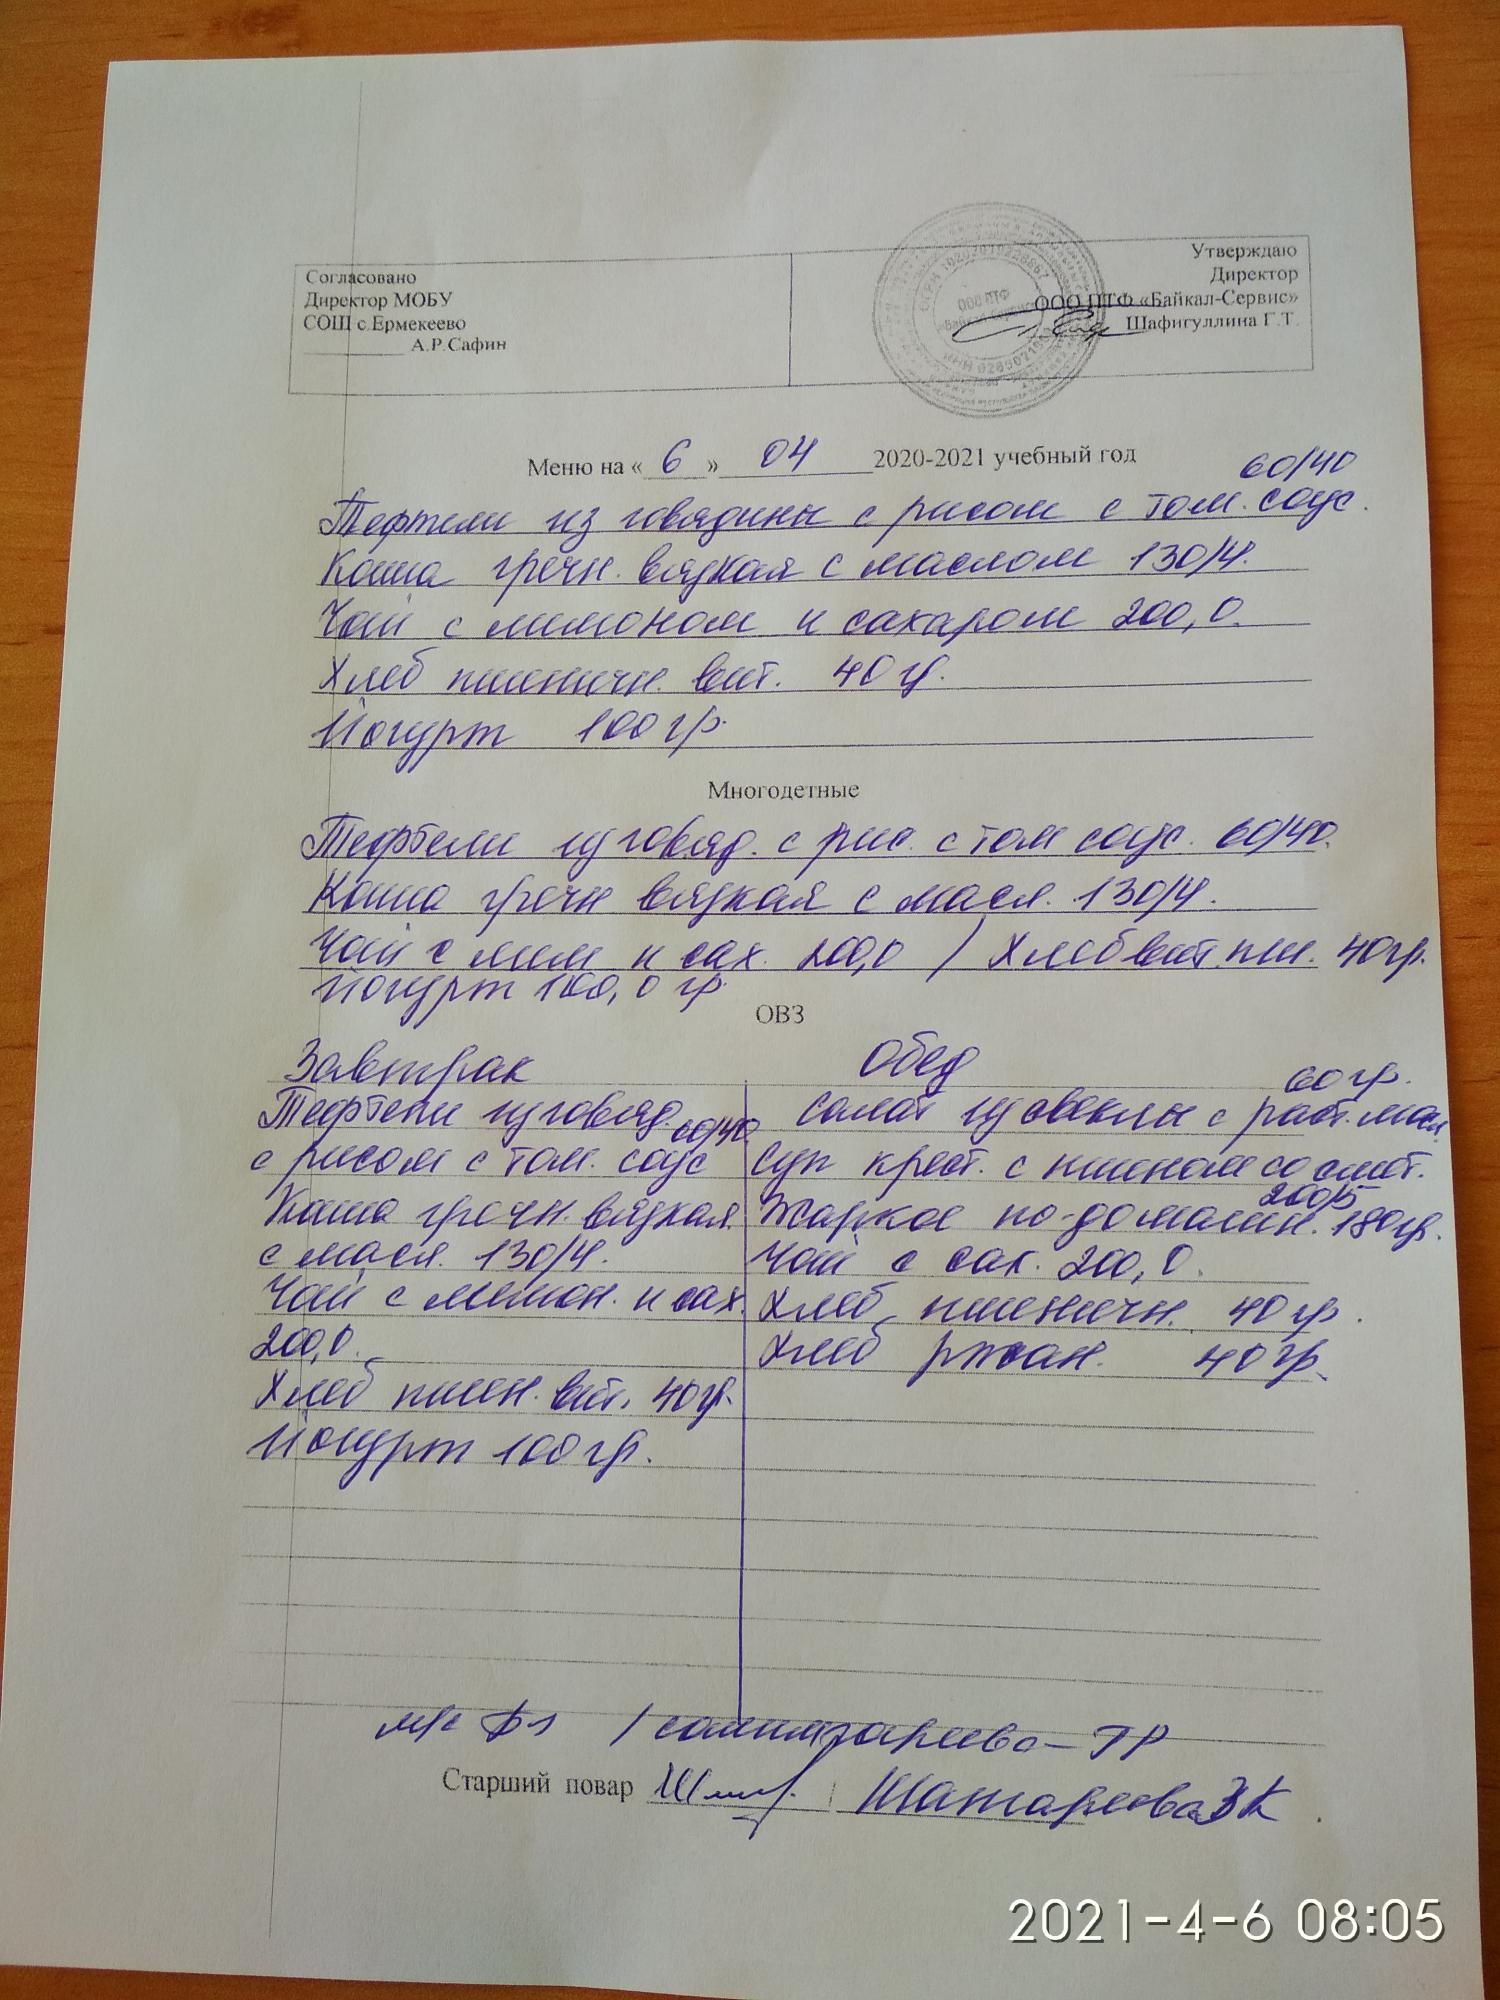 Согласовано
Директор МОБУ
СОШ с.Ермекеево
__________ А.Р.Сафин
Утверждаю
Директор
ООО ПТФ «Байкал-Сервис»
Шафигуллина Г.Т.
Меню на « 6 » 04 2020-2021 учебный год
60/40
Тефтели из говядины с рисом с том. соус.
Каша гречн. вязкая с маслом 130/4.
Чай с лимоном и сахаром 200,0.
Хлеб пшеничн. вит. 40 гр.
Йогурт 100 гр.
Многодетные
Тефтели из говяд. с рис. с том соус. 60/40.
Каша гречн вязкая с масл. 130/4.
Чай с лим и сах. 200,0 / Хлеб вит. пш. 40гр.
Йогурт 100,0 гр.
ОВЗ
Завтрак
Тефтели из говяд. 60/40
с рисом с том. соус
Каша гречн. вязкая
с масл. 130/4.
Чай с лимон. и сах.
200,0.
Хлеб пшен. вит. 40гр.
Йогурт 100 гр.
Обед
60 гр.
Салат из свеклы с раст. масл
Суп крест. с пшеном со смет.
200/5
Жаркое по-домашн. 180гр.
Чай с сах. 200,0.
Хлеб пшеничн. 40 гр.
Хлеб ржан. 40 гр.
м/с / ГР
Старший повар
2021-4-6 08:05